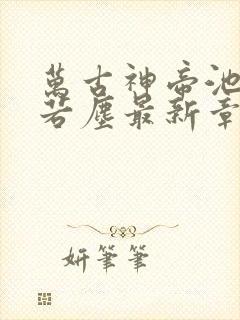 萬古神帝池
若塵最新章
妍筆筆